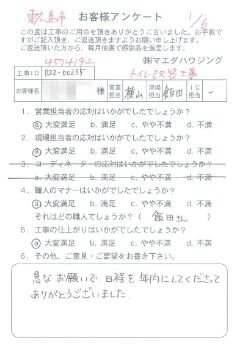 東広島市 お客様アンケート 1/6
この度は工事のご用命を頂きありがとうございました。お手数で
すがご記入頂き、ご返送頂きますようお願い申し上げます。
ご返送頂いた方から、毎月抽選で感謝品を進呈します。
4504192 ㈱マエダハウジング
工事ID 022-00235 トイレ改装工事
お客様名 様 営業担当 横山 現場担当 飯田 IC -
1. 営業担当者の応対はいかがでしたでしょうか?
a.大変満足 b.満足 c.やや不満 d.不満
2. 現場担当者の応対はいかがでしたでしょうか?
a.大変満足 b.満足 c.やや不満 d.不満
3. コーディネーターの応対はいかがでしたでしょうか?
a.大変満足 b.満足 c.やや不満 d.不満
4. 職人のマナーはいかがでしたでしょうか?
a.大変満足 b.満足 c.やや不満 d.不満
それはどの職人でしょうか?( 飯田さん )
5. 工事の仕上がりはいかがでしたでしょうか?
a.大変満足 b.満足 c.やや不満 d.不満
6. その他、ご意見・ご要望をお書き下さい。
急なお願いで、日程を年内にしてくださって
ありがとうございました。